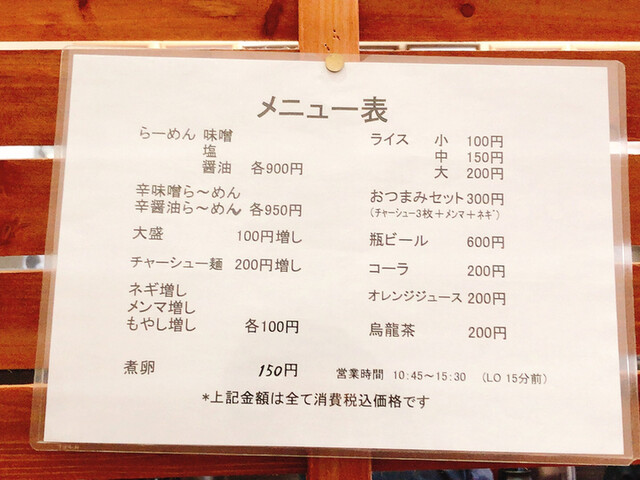 メニュー表
らーめん 味噌
塩
醤油 各900円
辛味噌ら～めん
辛醤油ら～めん 各950円
大盛 100円増し
チャーシュー麺 200円増し
ネギ増し
メンマ増し
もやし増し 各100円
煮卵 150円
ライス 小 100円
中 150円
大 200円
おつまみセット 300円
(チャーシュー3枚＋メンマ＋ネギ)
瓶ビール 600円
コーラ 200円
オレンジジュース 200円
烏龍茶 200円
営業時間 10:45～15:30 (LO 15分前)
*上記金額は全て消費税込価格です